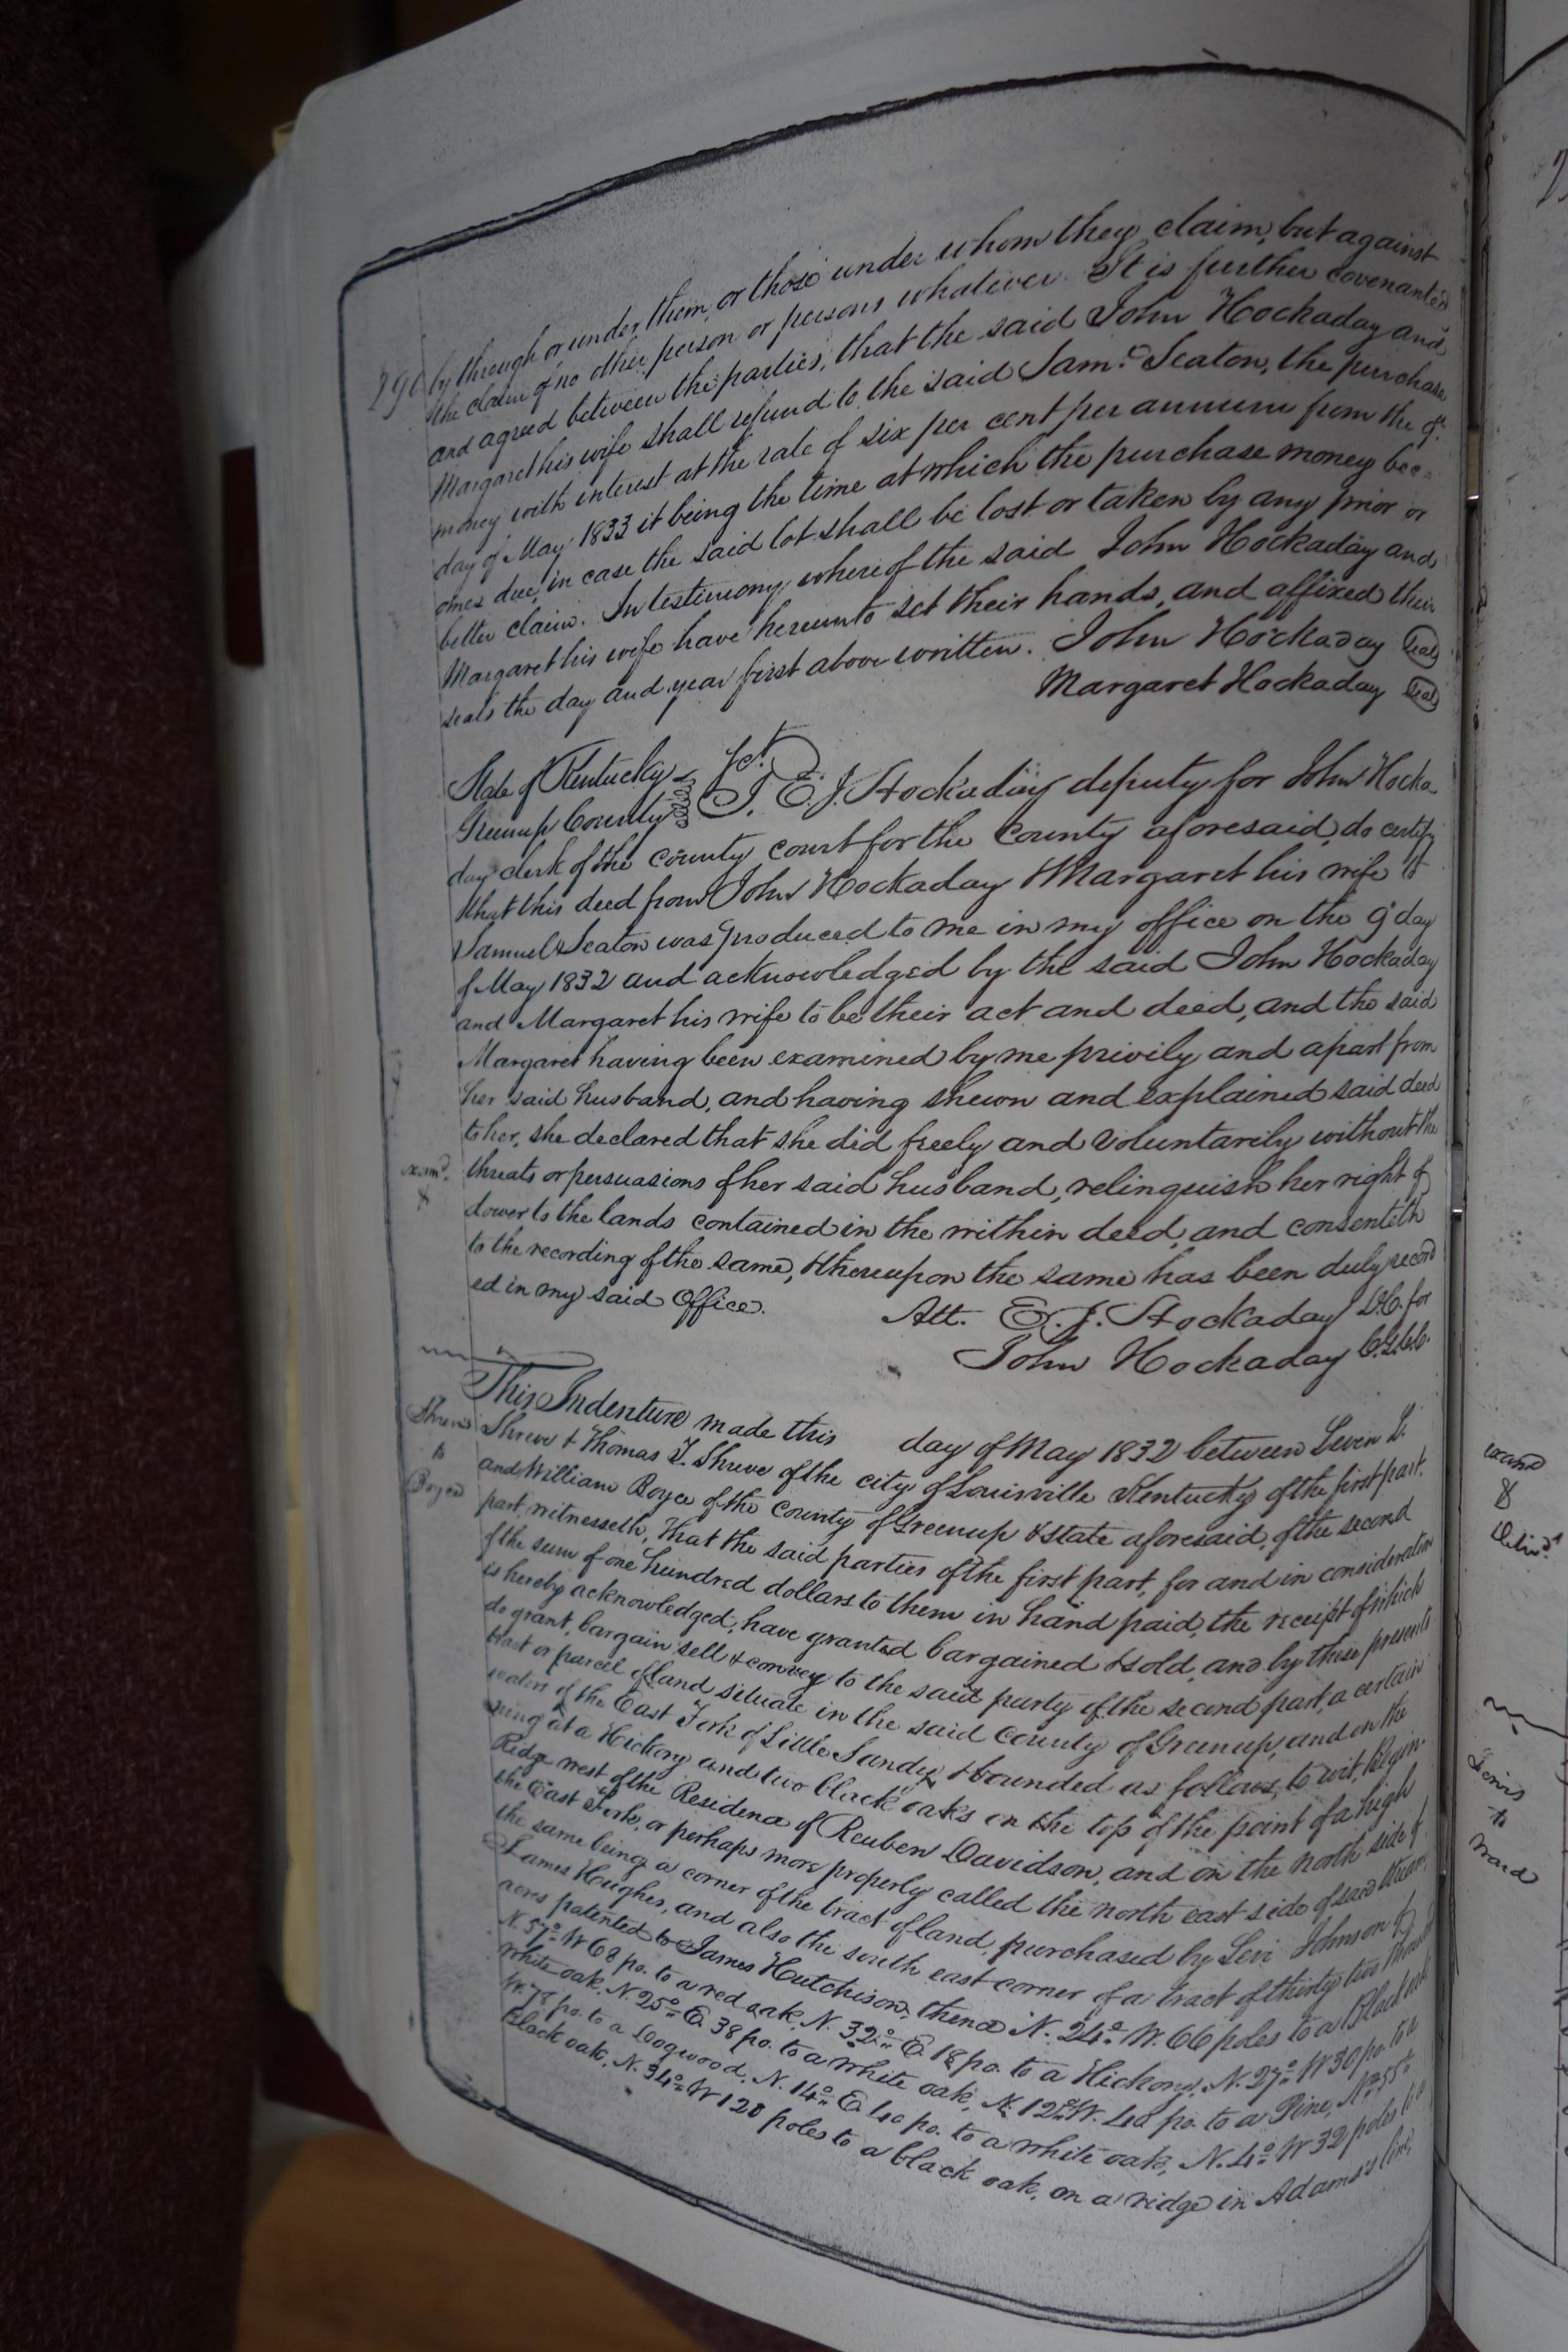 290 by through or under them, or those under whom they claim, but against
the claim of no other person or persons whatever. It is further covenanted
and agreed between the parties, that the said John Hockaday and
Margaret his wife shall refund to the said Saml. Seaton, the purchase
money with interest at the rate of six per cent per annum from the 9th
day of May 1833 it being the time at which the purchase money bec=
omes due, in case the said lot shall be lost or taken by any prior or
better claim. In testimony whereof the said John Hockaday and
Margaret his wife have hereunto set their hands, and affixed their
seals the day and year first above written. John Hockaday Seal
Margaret Hockaday Seal
State of Kentucky
Greenup County Sct. I, E. J. Hockaday deputy for John Hocka-
day clerk of the county court for the County aforesaid, do certify
that this deed from John Hockaday & Margaret his wife to
Samuel Seaton was produced to me in my office on the 9th day
of May 1832 and acknowledged by the said John Hockaday
and Margaret his wife to be their act and deed, and the said
Margaret having been examined by me privily and apart from
her said husband, and having shewn and explained said deed
to her, she declared that she did freely and voluntarily without the
examd. threats or persuasions of her said husband, relinquish her right of
&
dower to the lands contained in the within deed, and consenteth
to the recording of the same, & thereupon the same has been duly record
ed in my said Office.
Att. E. J. Hockaday D.C. for
John Hockaday C.G.C.C.
This Indenture made this day of May 1832 between Levin L.
Shreve
to
Boyce
Shreve & Thomas T. Shreve of the city of Louisville Kentucky of the first part.
and William Boyce of the County of Greenup & state aforesaid, of the second
part, witnesseth, that the said parties of the first part, for and in consideration
of the sum of one hundred dollars to them in hand paid, the receipt of which
is hereby acknowledged, have granted bargained & sold, and by these presents
do grant, bargain sell & convey to the said party of the second part, a certain
tract or parcel of land situate in the said County of Greenup, and on the
waters of the East Fork of Little Sandy, & bounded as follows, to wit, Begin-
ning at a Hickory and two black oaks on the top of the point of a high
Ridge west of the Residence of Reuben Davidson, and on the north side of
the East Fork, or perhaps more properly called the north east side of said stream,
the same being a corner of the tract of land, purchased by Levi Johnson of
James Hughes, and also the south east corner of a tract of thirty two thousand
acres patented to James Hutchison, thence N. 24° W. 66 poles to a Black oak
N. 57° W 68 po. to a red oak, N. 32° E. 18 po. to a Hickory, N. 27° W 30 po. to a
white oak, N. 25° E. 38 po. to a white oak, N. 12° W. 40 po. to a Pine, N. 55°
W. 78 po. to a Dogwood, N. 14° E 40 po. to a white oak, N. 4° W 32 poles to a
Black oak, N. 34° W 120 poles to a black oak, on a ridge in Adams's line,
examd
&
Delivd.
to
Ward